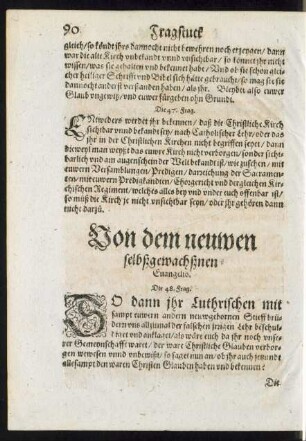 90 Fragstuck
gleich / so köndt jhrs dannocht nicht bewehren noch erzeygen / dann
war die alte Kirch unbekandt unnd unsichtbar / so könnet jhr nicht
wissen / was sie gehalten und bekennet habe / Und ob sie schon gleich
ehn heiliger Schrifft und Bibel sich hätte gebraucht / so mag sie sie
dannocht anderst verstanden haben / als jhr. Bleybt also ewer
Glaub ungewiß / und ewer fürgeben ohn Grundt.
Die 47. Frag.
ENtweders werdet jhr bekennen / daß die Christliche Kirch
sichtbar unnd bekandt sey / nach Catholischer Lehr / oder das
jhr in der Christlichen Kirchen nicht begriffen seyet / dann
dieweyl man weyßt das ewre Kirch nicht verborgen / sonder sicht-
barlich und am augenschein der Welt bekandt ist / wie zusehen / mit
ewern Versamblungen / Predigen / darreichung der Sacramen-
ten / mit ewern Predigkandten / Ehegericht und dergleichen Kir-
chischen Regiment / welches alles bey und under euch offenbar ist /
so müß die Kirch je nicht unsichtbar seyn / oder jhr gehören dann
nicht darzü.
Von dem neuwen
selbßgewachßnen
Euangelio.
Die 48. Frag.
SO dann jhr Lutherischen mit
sampt ewern andern neuwgebornen Stieff brü-
dern uns allzumal der falschen jrrigen Lehr beschul-
diget und
ser Gemeynschafft waret / der ware Christliche Glauben verbor-
gen gewesen unnd unbewißt / so saget nun an / ob jhr auch jemandt
alle sampt den waren Christen Glauben haben und bekennen?
Die